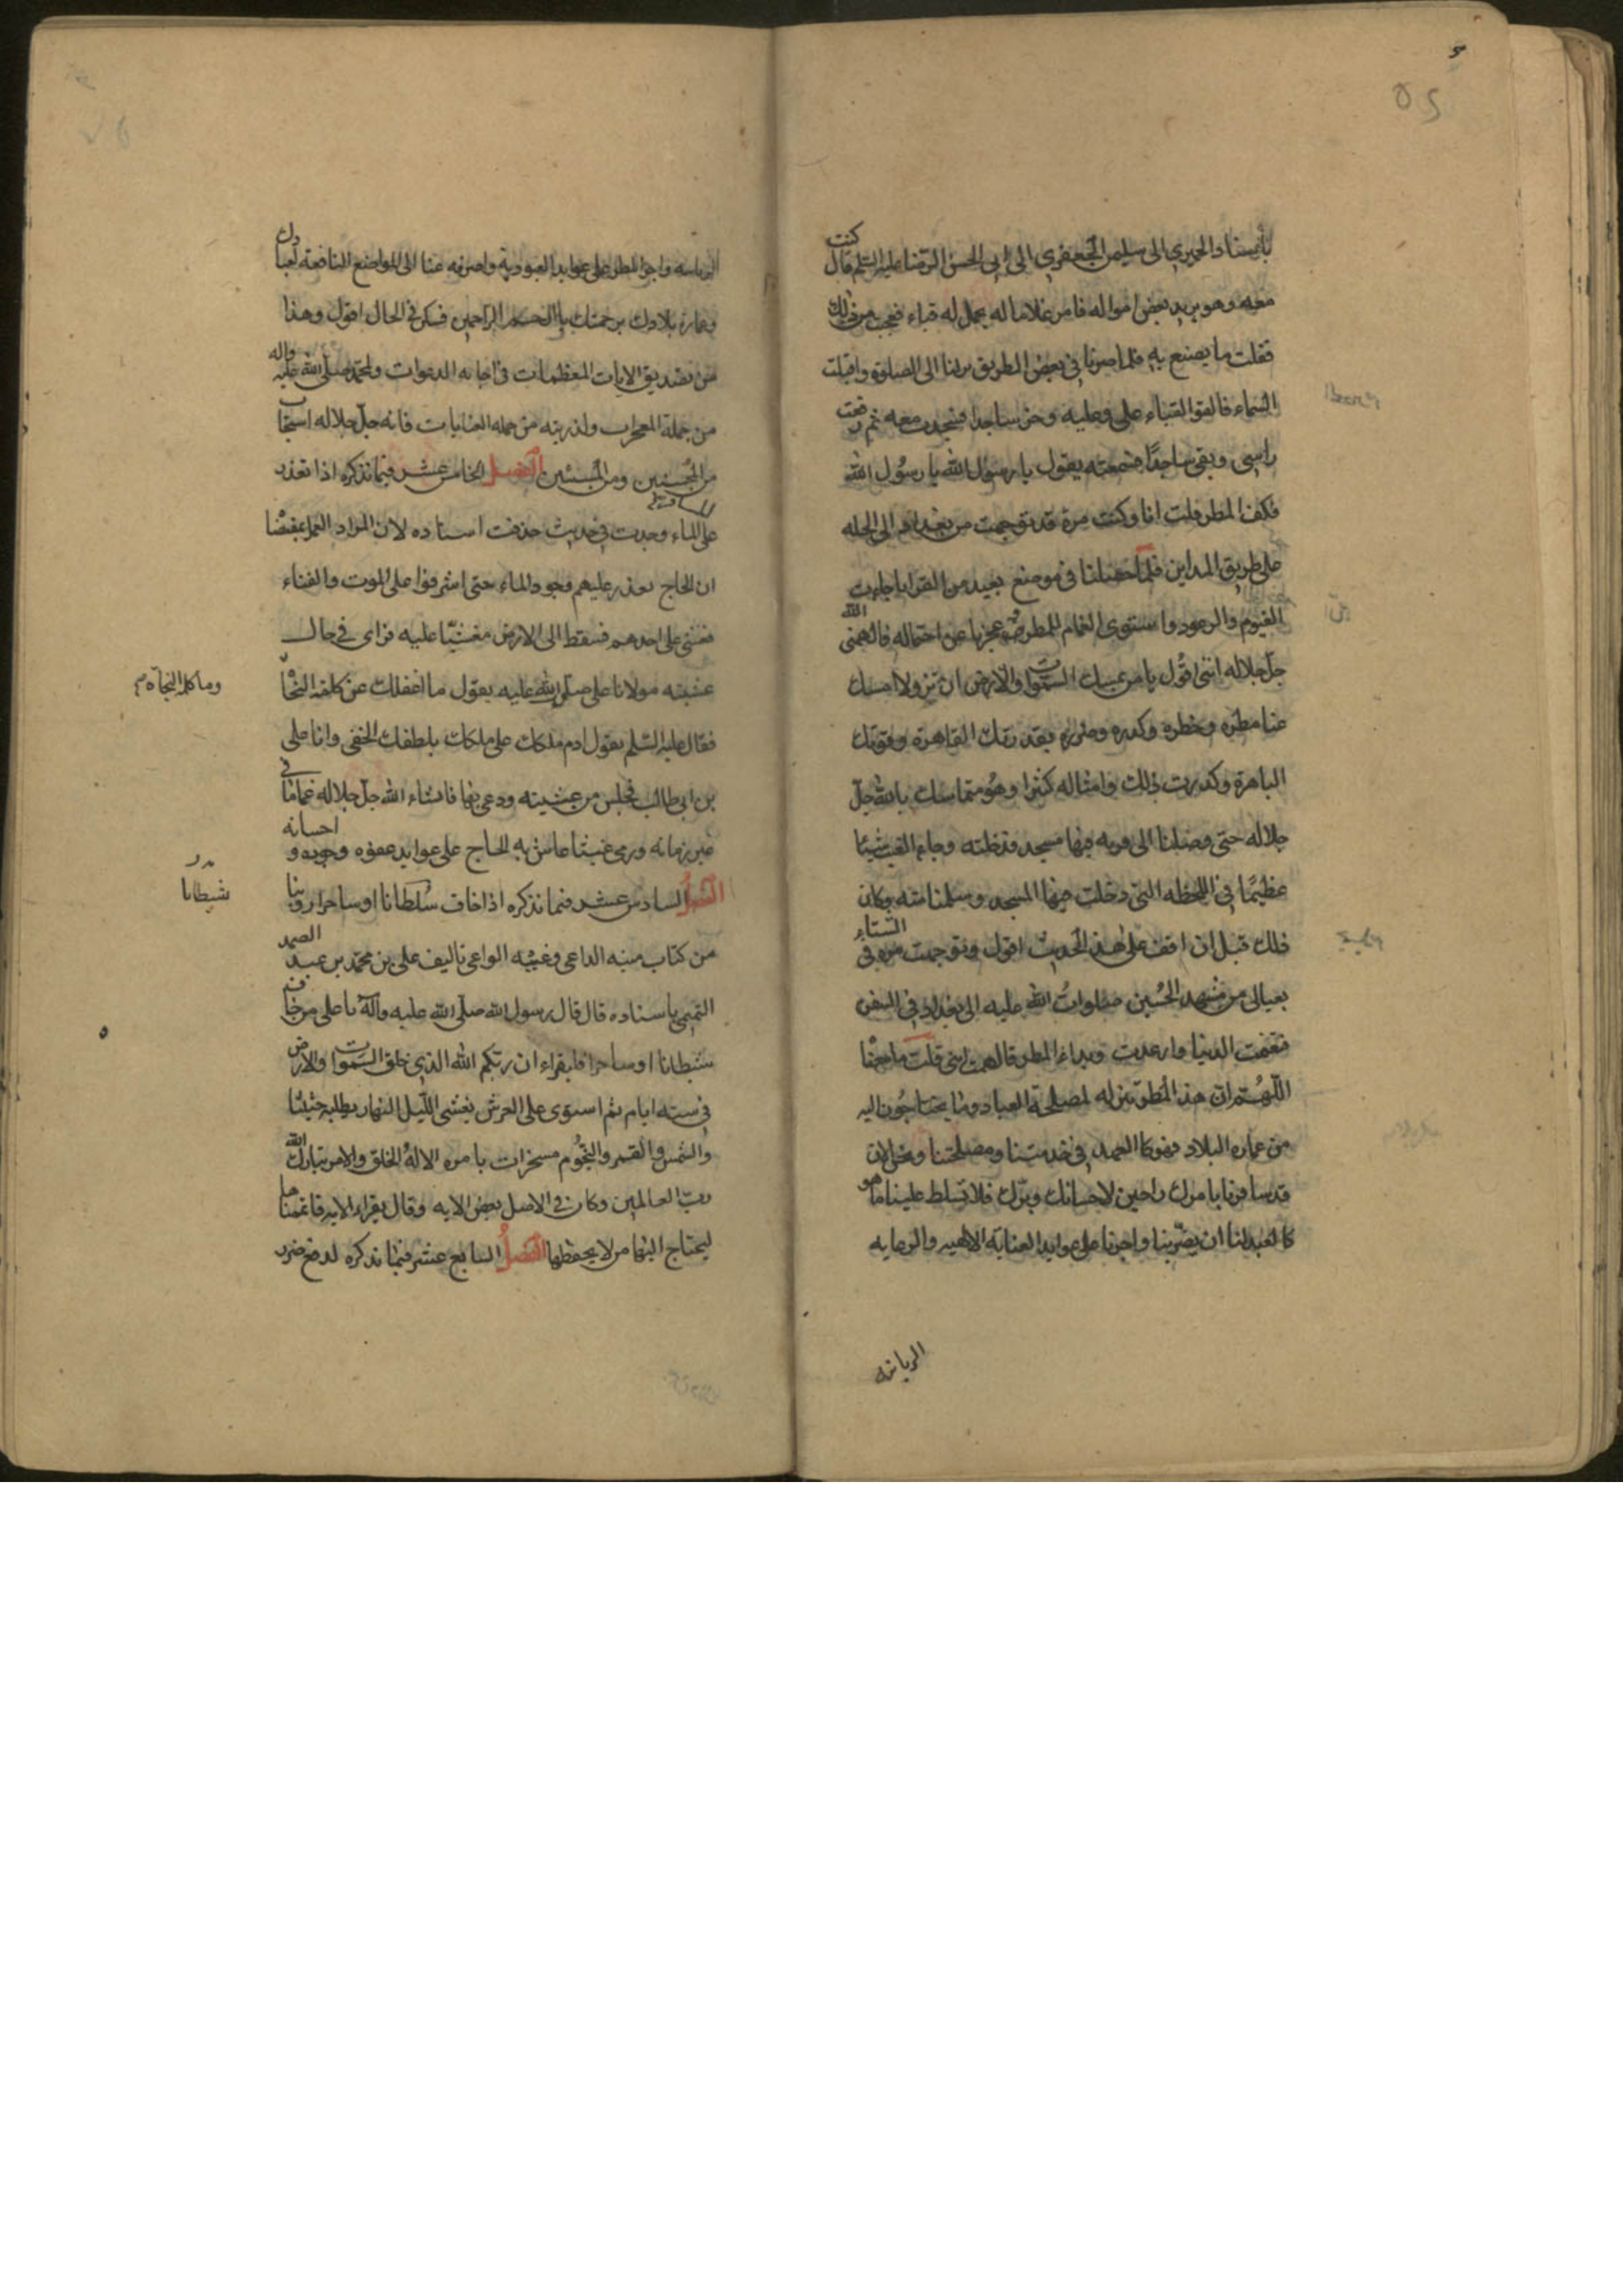 باسناد الحميري الى سليمن الجعفري الى ابى الحسن الرضا عليه السلم قال كنت
معه وهو يريد بعض امواله فامر غلاما له يحمل له قباء فعجبت من ذلك
فقلت ما يصنع به فلما صرنا في بعض الطريق نزلنا الى الصلوة واقبلت
السماء فالقوا القباء على وعليه وخر ساجدا فسجدت معه ثم رفعت
راسى وبقى ساجدًا فسمعته يقول يا رسول الله يا رسُول الله
فكف المطر قلت انا وكنت مرة قد توجهت من بغداد الى الحله
على طريق المداين فلما حصلنا في موضع بعيد من القرايا جاءت
الغيوم والرعود واستوى الغمام للمطر وعجزنا عن احتماله فالهمنى الله
جلّ جلاله اننى اقُول يا من يمسك السموات والارض ان تزولا امسك
عنا مطره وخطره وكدره وضرره بقدرتك القاهرة وقوتك
الباهرة وكررت ذلك وامثاله كثيرا وهُو متماسك بالله جلّ
جلاله حتى وصلنا الى قريه فيها مسجد فدخلته وجاء الغيث شيئا
عظيمًا في اللحظه التى دخلت فيها المسجد وسلمنا منه وكان
ذلك قبل ان اقف على هذا الحديث اقول وتوجهت مره في الشتاء
بعيالى من مشهد الحُسين صلوات الله عليه الى بغداد في السفن
فتغيمت الدنيا وارعدت وبدا المطر فالهمت اننى قلت ما معنا
اللّهُم ان هذا المطر تنزله لمصلحة العباد وما يحتاجُون اليه
من عماره البلاد فهو كالعبد في خدمتنا ومصلحتنا ونحن الان
قد سافرنا بامرك راجين لاحسانك وبرّك فلا تسلط علينا ما هو
كالعبد لنا ان يضرّ بنا واجرنا على عوايد العناية الالهيه والرعايه
الربانيه
الربانيه واجر المطر على عوايد العبودية واصرفه عنا الى المواضع النافعة لعبادك
وعمارة بلادك برحمتك يا ارحم الراحمين فسكن في الحال اقول وهذا
من تصديق الايات المعظمات في اجابه الدعوات ولمحمد صلى الله عليه واله
من جملة المعجزات ولذريته من جمله العنايات فانه جلّ جلاله استجاب
من المحسنين ومن المسيئين الفصل الخامس عشر فيما نذكره اذا تعذر
على المسافرين الماء وجدت في حديث حذفت اسناده لان المراد العمل بمقتضا
ان الحاج تعذر عليهم وجود الماء حتى اشرفوا على الموت والفناء
فغشى على احدهم فسقط الى الارض مغشيّا عليه فراى في حال
غشيته مولانا على صلى الله عليه يقول ما اغفلك عن كلمة النجاة
وما كلمة النجاة م
فقال عليه السّلم يقول ادم ملكك على ملكك بلطفك الخفى وانا على
بن ابى طالب فجلس من غشيته ودعى بها فانشاء الله جلّ جلاله غماما في
غير زمانه ورمى غيثا عاش به الحاج على عوايد عفوه وجوده و احسانه
الفصل السادس عشر فيما نذكره اذا خاف سُلطانا او ساحرا روينا
شيطانا
من كتاب منيه الداعى وغنيه الواعى تاليف على بن محمّد بن عبد الصمد
التميمى باسناده قال قال رسول الله صلّى الله عليه وآله يا على من خاف
شيطانا او ساحرا فليقراء ان ربّكم الله الذي خلق السموات والارض
في سته ايام ثم استوى على العرش يغشى اللّيل النهار يطلبه حثيثا
والشمس والقمر والنجُوم مسخرات بامره الا لهُ الخلق والامر تبارك الله
ربّ العالمين وكان في الاصل بعض الايه وقال يقراء الايه فاتممناها
ليحتاج اليها من لا يحفظها الفصلُ السابع عشر فيما نذكره لدفع ضرر